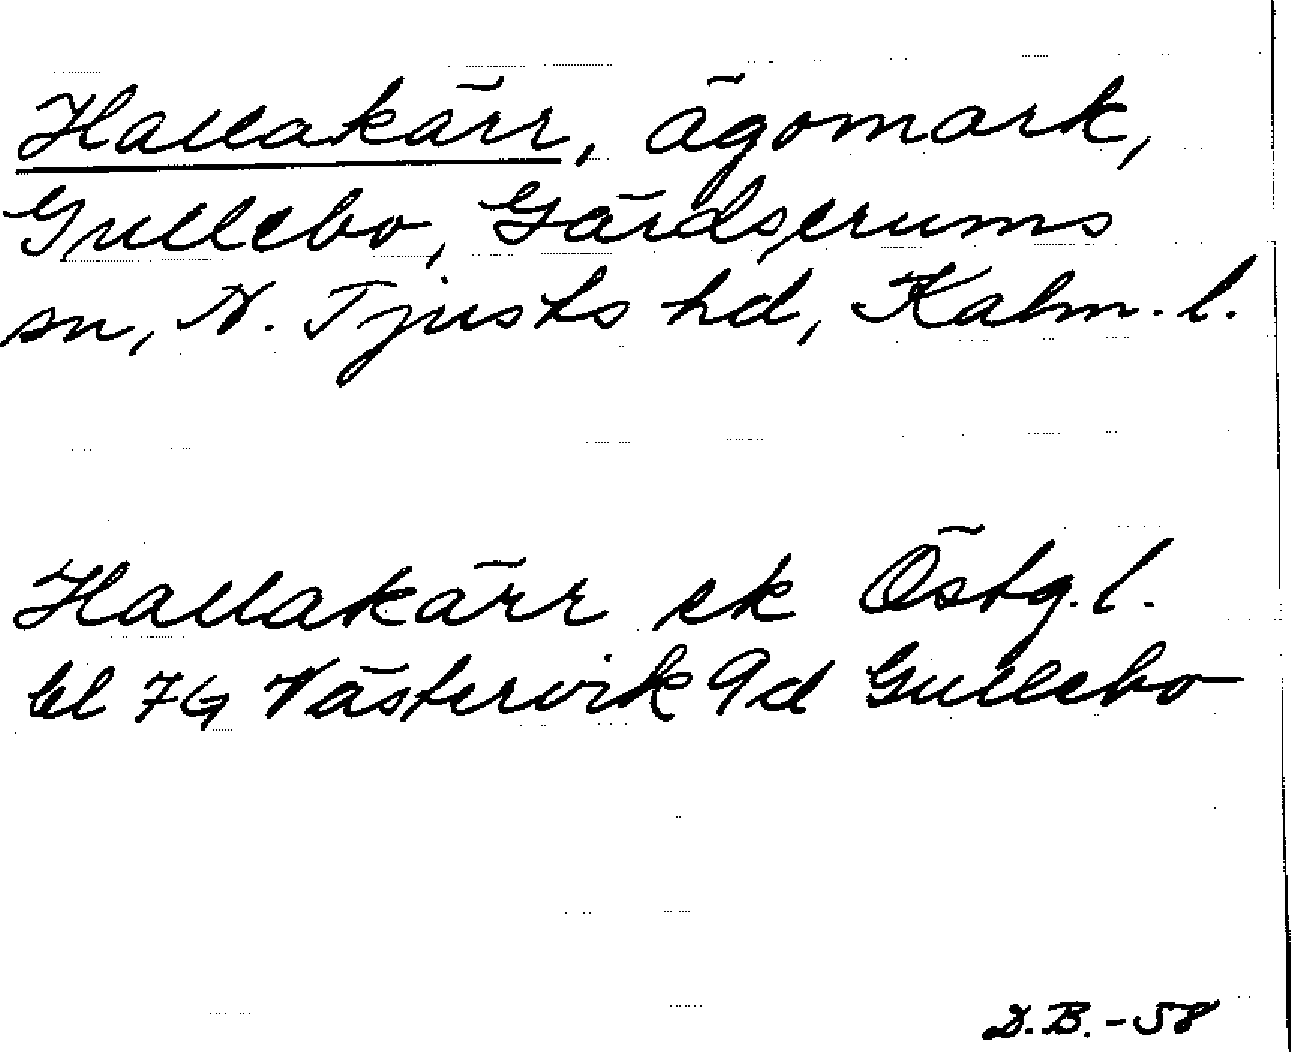 Hallakärr, ägomark,
Gullebo, Gärdserums
sn, N. Tjusts hd, Kalm. l.
Hallakärr ek Östg. l.
bl 7G Västervik 9d Gullebo
D.B. - 58